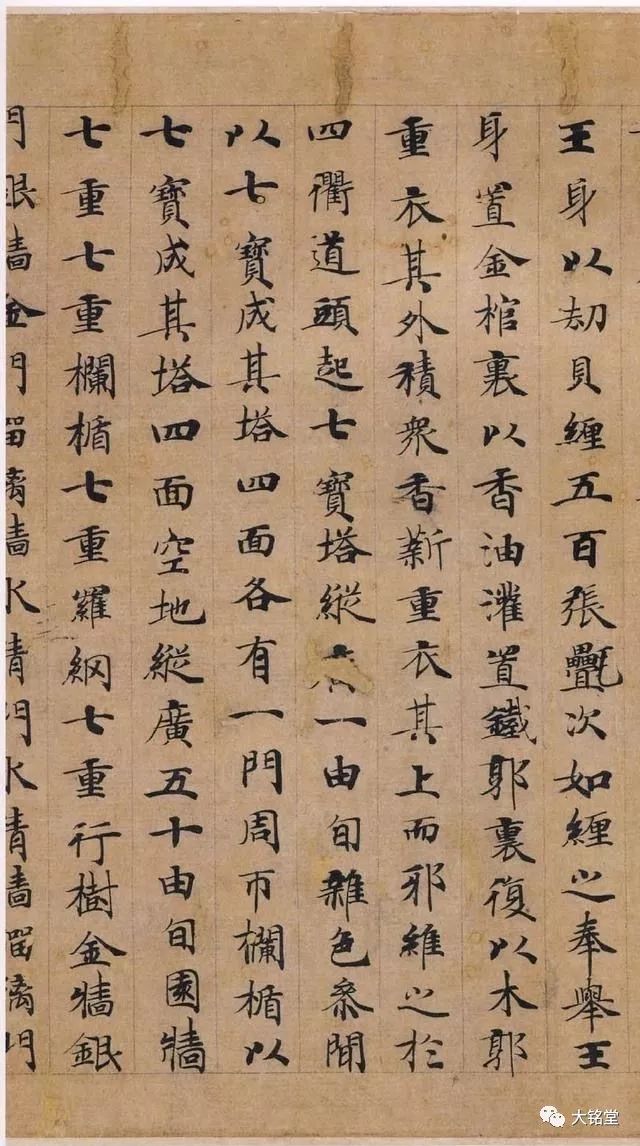 王身以劫貝纏五百張氎次如纏之奉舉王
身置金棺裏以香油灌置鐵郭裏復以木郭
重衣其外積衆香薪重衣其上而邪維之於
四衢道頭起七寶塔縱一由旬雜色參間
以七寶成其塔四面各有一門周帀欄楯以
七寶成其塔四面空地縱廣五十由旬園牆
七重七重欄楯七重羅網七重行樹金牆銀
門銀牆金門瑠璃牆水精門水精牆瑠璃門
大铭堂